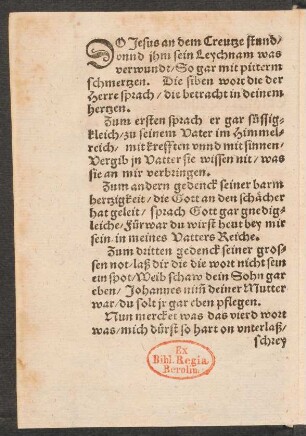 DO Jesus an dem Creutze stund/
vnnd jhm sein Leychnam was
verwundt/ So gar mit pitterm
schmertzen. Die siben wort die der
Herre sprach/ die betracht in deinem
hertzen.
Zum ersten sprach er gar süssig-
kleich/ zu seinem Vater im Himmel-
reich/ mit krefften vnnd mit sinnen/
Vergib jn Vatter sie wissen nit/ was
sie an mir verbringen.
Zum andern gedenck seiner barm
hertzigkeit/ die Gott an den schächer
hat geleit/ sprach Gott gar gnedig-
leiche/ Fürwar du wirst heut bey mir
sein in meines Vatters Reiche.
Zum dritten gedenck seiner gros-
sen not/ laß dir die die wort nicht sein
ein spot/ Weib schaw dein Sohn gar
eben/ Johannes nim̄ deiner Mutter
war/ du solt jr gar eben pflegen.
Nun mercket was das vierd wort
was/ mich dürst so hart on vnterlaß/
schrey
Ex
Bibl. Regia
Berolin.